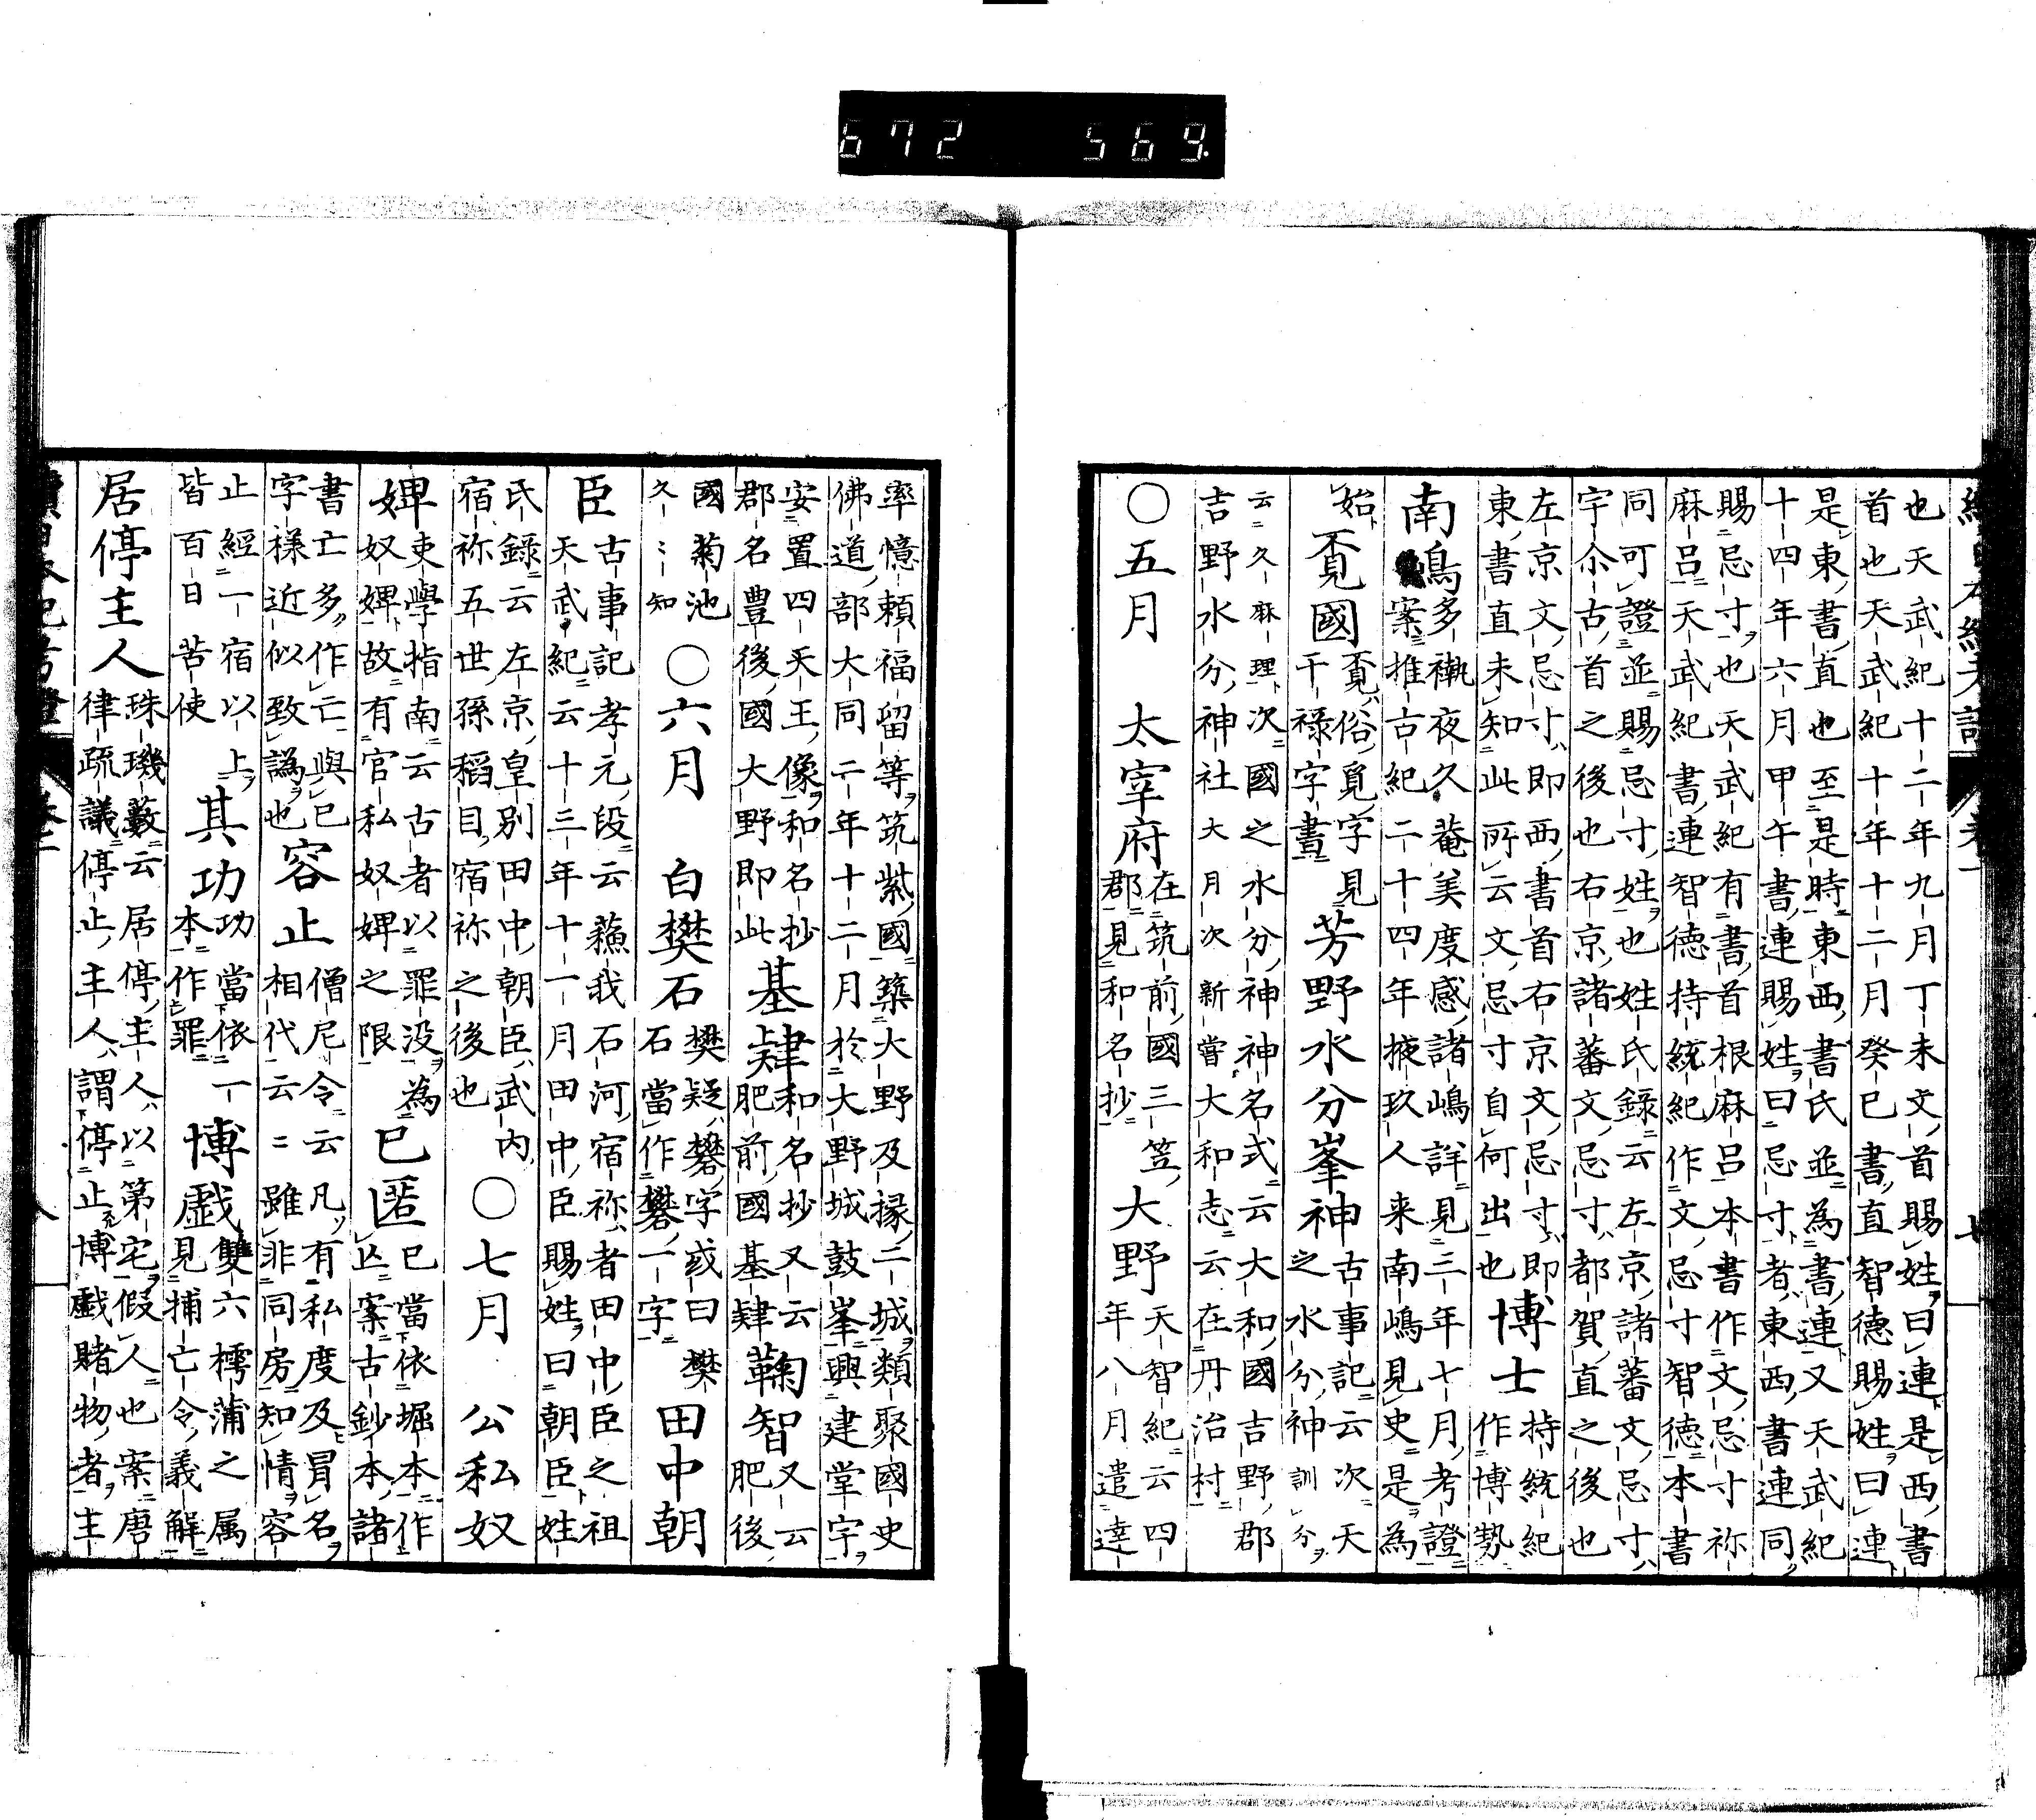 672 569.
也天武紀十二年九月丁未文首賜姓曰連是西書
首也天武紀十年十二月癸巳書直智德賜姓曰連
是東書直也至是時東西書氏並為書連又天武紀
十四年六月甲午書連賜姓曰忌寸者東西書連同
賜忌寸也天武紀有書首根麻呂本書作文忌寸祢
麻呂天武紀書連智德持統紀作文忌寸智德本書
同可證並賜忌寸姓也姓氏錄云左京諸蕃文忌寸
字尒古首之後也右京諸蕃文忌寸都賀直之後也
左京文忌寸即西書首右京文忌寸即
東書直未知此所云文忌寸自何出也
博士
持統紀
作博勢
南嶋
多褹夜久菴美度感諸嶋詳見三年七月考證
案推古紀二十四年掖玖人来南嶋見史是為
始
覔國
覔俗覓字見
干祿字書
芳野水分峯神
古事記云次天
之水分神訓分
云久麻理次國之水分神神名式云大和國吉野郡
吉野水分神社大月次新嘗大和志云在丹治村
〇五月
太宰府
在筑前國三笠
郡見和名抄
大野
天智紀云四
年八月遣達
率憶頼福留等筑紫國築大野及椽二城類聚國史
佛道部大同二年十二月於大野城鼓峯興建堂宇
安置四天王像和名抄云
郡名豊後國大野即此
基肄
和名抄又云
肥前國基肄
鞠智
又云
肥後
國菊池
久々知
〇六月
白樊石
樊疑礬字或曰樊
石當作礬一字
田中朝
臣
古事記孝元段云蘓我石河宿祢者田中臣之祖
天武紀云十三年十一月田中臣賜姓曰朝臣姓
氏錄云左京皇別田中朝臣武内
宿祢五世孫稻目宿祢之後也
〇七月
公私奴
婢
吏學指南云古者以罪没為
奴婢故有官私奴婢之限
已匿
已當依堀本作
亡案古鈔本諸
書亡多作亡與已
字樣近似致譌也
容止
僧尼令云凡有私度及冒名
相代云云雖非同房知情容
止經一宿以上
皆百日苦使
其功
功當依一
本作罪
博戯
雙六樗蒲之属
見捕亡令義解
居停主人
珠璣藪云居停主人以第宅假人也案唐
律疏議停止主人謂停止博戯賭物者主